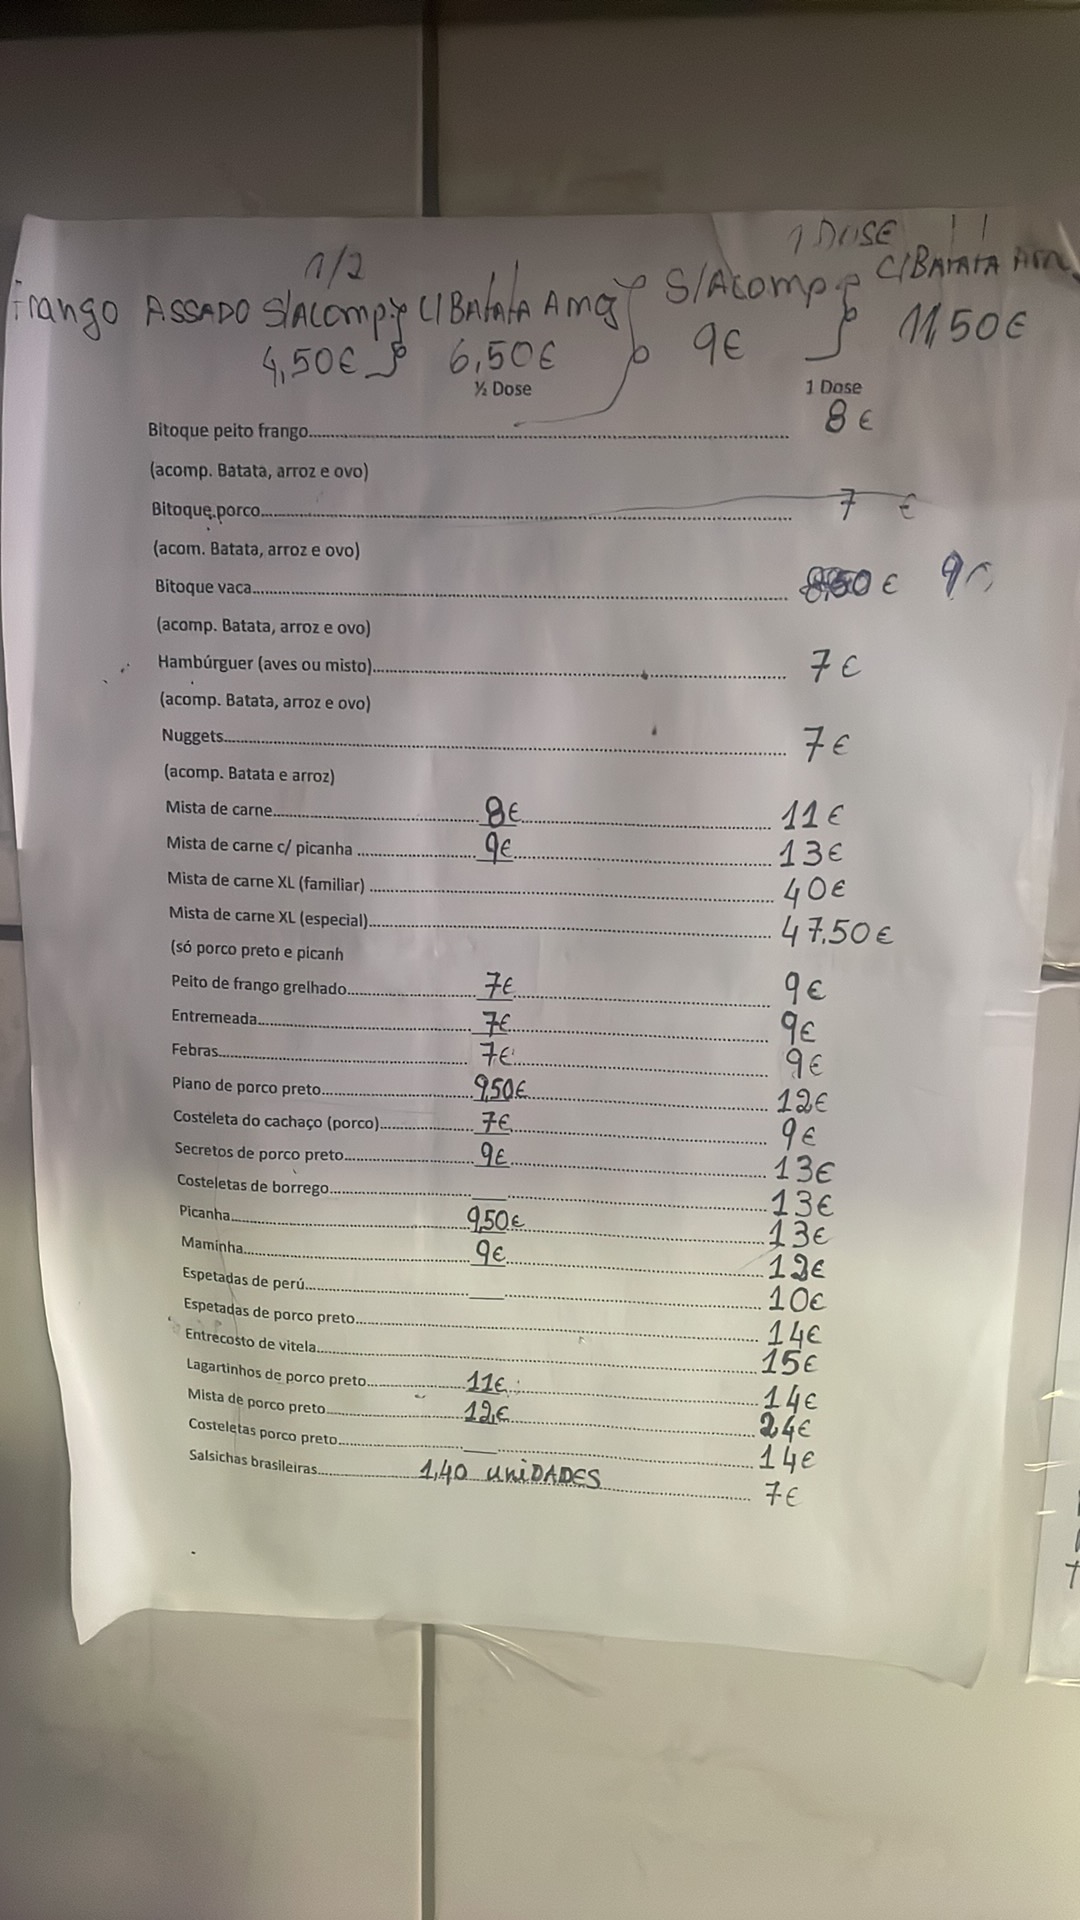 1/2 1 DOSE
Frango ASSADO S/Acomp. C/BATATA S/Acomp C/BATATA
4,50€ 6,50€ 9€ 11,50€
½ Dose 1 Dose
Bitoque peito frango 8€
(acomp. Batata, arroz e ovo)
Bitoque porco 7 €
(acom. Batata, arroz e ovo)
Bitoque vaca 8,50€ 9€
(acomp. Batata, arroz e ovo)
Hambúrguer (aves ou misto) 7€
(acomp. Batata, arroz e ovo)
Nuggets 7€
(acomp. Batata e arroz)
Mista de carne 8€ 11€
Mista de carne c/ picanha 9€ 13€
Mista de carne XL (familiar) 40€
Mista de carne XL (especial) 47.50€
(só porco preto e picanh
Peito de frango grelhado 7€ 9€
Entremeada 7€ 9€
Febras 7€ 9€
Piano de porco preto 9,50€ 12€
Costeleta do cachaço (porco) 7€ 9€
Secretos de porco preto 9€ 13€
Costeletas de borrego 13€
Picanha 9,50€ 13€
Maminha 9€ 12€
Espetadas de perú 10€
Espetadas de porco preto 14€
Entrecosto de vitela 15€
Lagartinhos de porco preto 11€ 14€
Mista de porco preto 12€ 24€
Costeletas porco preto 14€
Salsichas brasileiras 1,40 uniDADES 7€